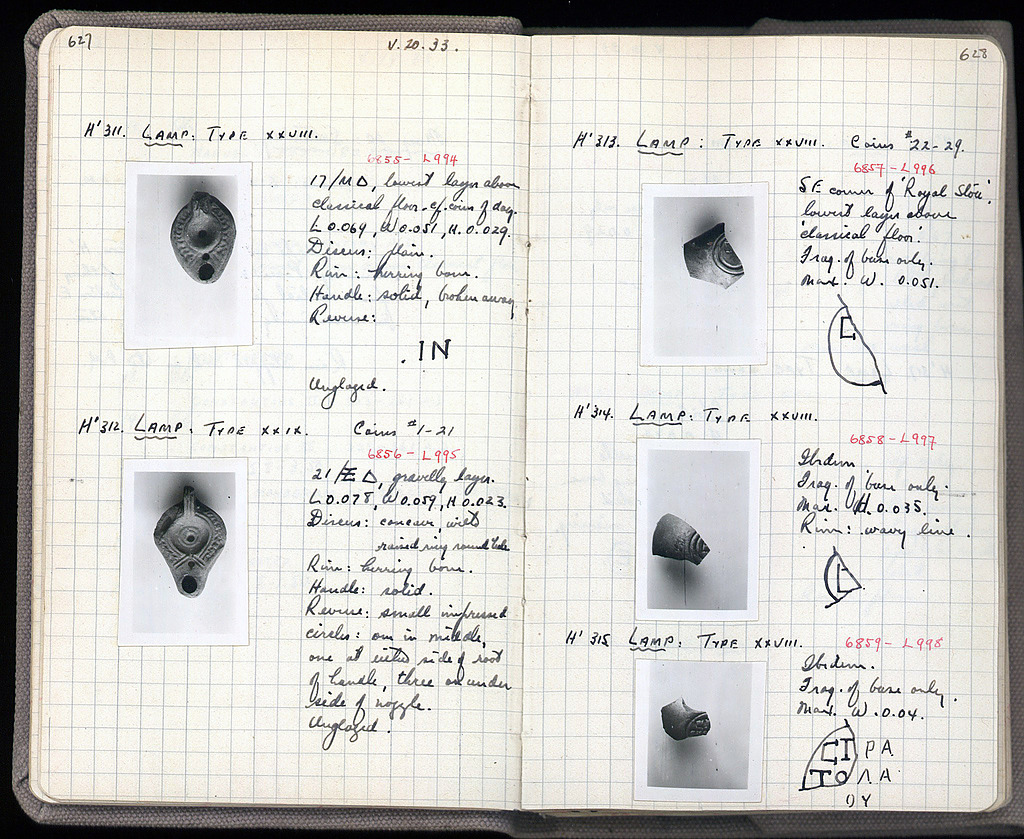 627
V.20.33.
H'311. LAMP: TYPE XXVIII.
6855-L994
17/ΜΔ, lowest layer above
classical floor. cf. coins of day.
L 0.069, W 0.051, H. 0.029.
Discus: plain.
Rim: herring bone.
Handle: solid, broken away
Reverse:
. IN
Unglazed.
H'312. LAMP: TYPE XXIX. Coins #1-21
6856-L995
21/ΞΔ, gravelly layer.
L 0.078, W 0.059, H 0.023.
Discus: concave, with
raised ring round hole
Rim: herring bone.
Handle: solid.
Reverse: small impressed
circles: one in middle,
one at either side of root
of handle, three on under
side of nozzle.
Unglazed.
628
H'313. LAMP: TYPE XXVIII. Coins #22-29.
6857-L996
SE corner of 'Royal Stoa'.
lowest layer above
'classical floor'.
Frag. of base only.
Max. W. 0.051.
H'314. LAMP: TYPE XXVIII.
6858-L997
Ibidem.
Frag. of base only.
Max. W. 0.035.
Rim: wavy line.
H'315 LAMP: TYPE XXVIII. 6859-L998
Ibidem.
Frag. of base only.
Max. W. 0.04.
CI ΡΑ
ΤΟ ΛΑ
ΟΥ